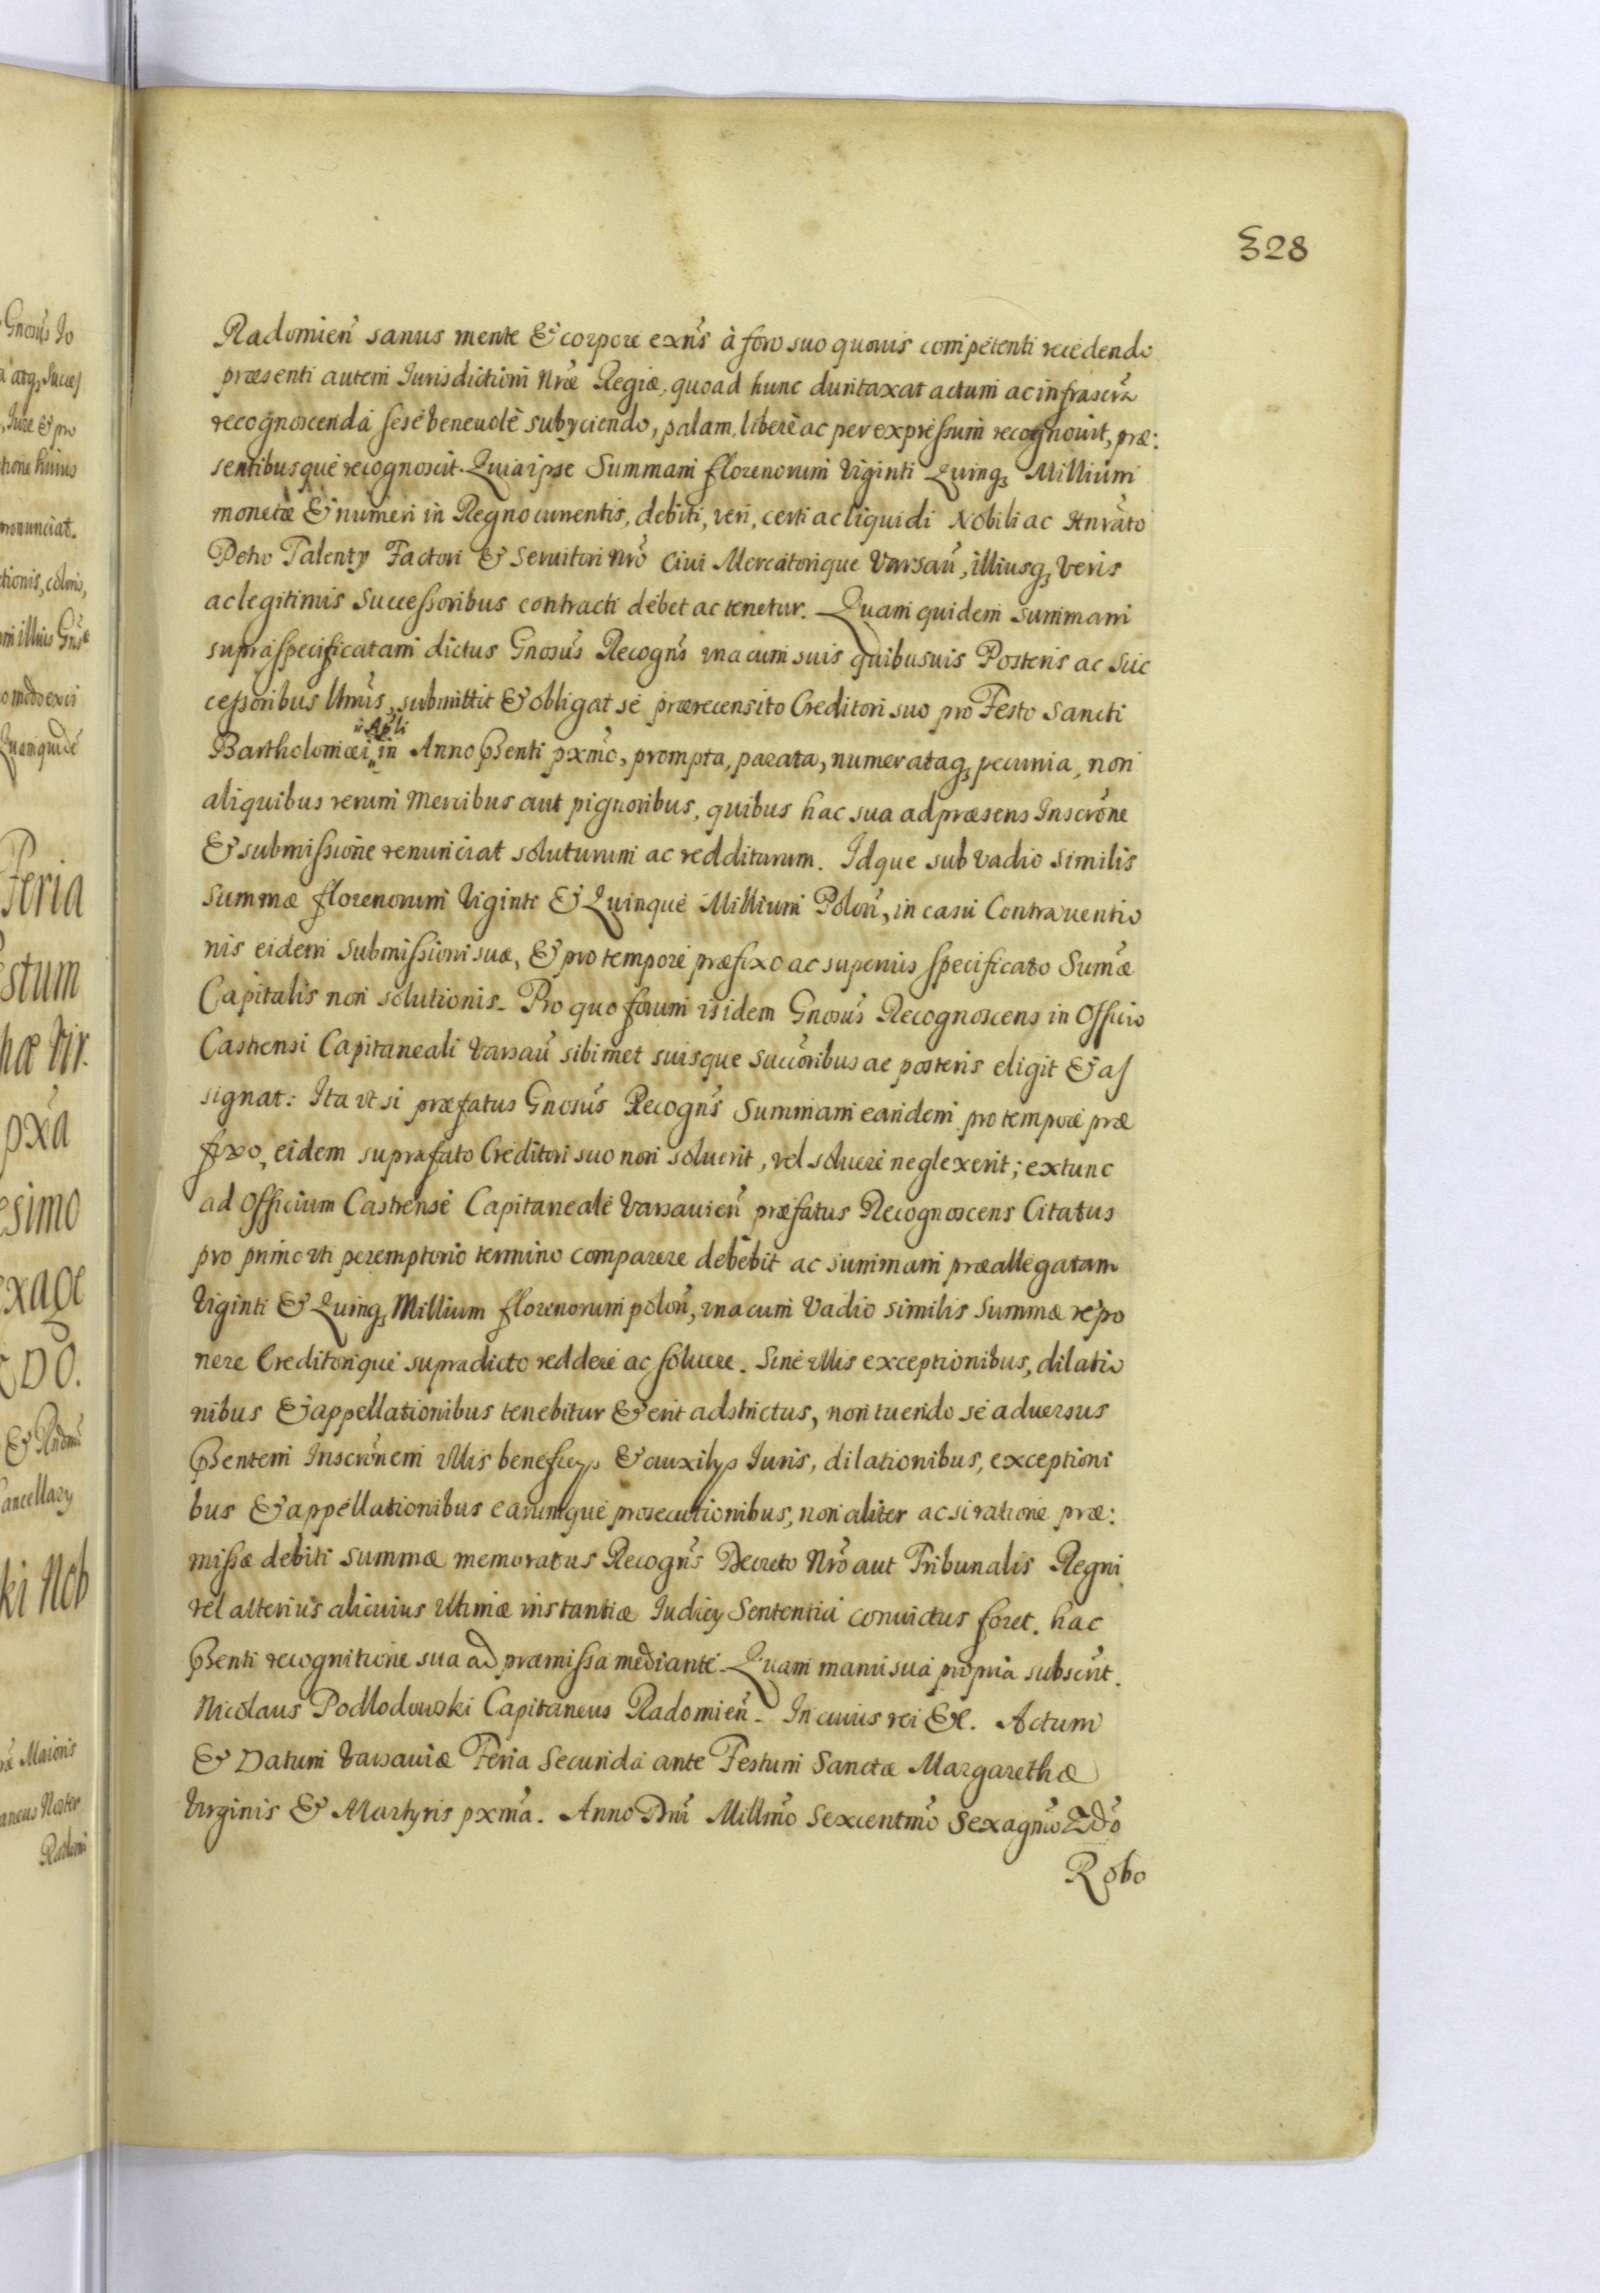 328
Radomien̄ sanus mente & corpore exn̄s à foro suo quouis competenti recedendo
præsenti autem Iurisdictioni Nræ Regiæ, quoad hunc duntaxat actum ac infrascr̄a
recognoscenda sese beneuolè subyciendo, palam, liberè ac per expressum recognouit, præ:
sentibusque recognoscit. Quia ipse Summam florenorum Viginti Quinq₃ Millium
monetæ & numeri in Regno currentis, debiti, veri, certi ac liquidi Nobili ac Hnrāto
Petro Talenty Factori & Seruitori Nrō Ciui Mercatorique Varsau̅, illiusq₃ veris
ac legitimis Successoribus contracti debet ac tenetur. Quam quidem summam
supraspecificatam dictus Gnosūs Recogn̄s vna cum suis quibusuis Posteris ac Suc
cessoribus Vnīs, submittit & obligat se prærecensito Creditori suo pro Festo Sancti
Bartholomæi Apli in Anno pn̄enti pxmō, prompta, parata, numerataq₃ pecunia, non
aliquibus rerum Mercibus aut pignoribus, quibus hac sua ad præsens Inscrōne
& submissione renunciat soluturum ac redditurum. Idque sub vadio similis
summæ florenorum Viginti & Quinque Millium Polon̄, in casu Contrauentio
nis eidem submissioni suæ, & pro tempore præfixo ac superius specificato Sum̄æ
Capitalis non solutionis. Pro quo forum isidem Gnosūs Recognoscens in Officio
Castrensi Capitaneali Varsau̅ sibimet suisque succōribus ac posteris eligit & as
signat: Ita vt si præfatus Gnosūs Recogn̄s Summam eandem pro tempore præ
fixo, eidem suprafato Creditori suo non soluerit, vel soluere neglexerit; extunc
ad Officium Castrense Capitaneale Varsauien̄ præfatus Recognoscens Citatus
pro primo vti peremptorio termino comparere debebit ac summam præallegatam
Viginti & Quinq₃ Millium florenorum polon̄, vna cum Vadio similis Summæ repo
nere Creditorique supradicto reddere ac soluere. Sine vllis exceptionibus, dilatio
nibus & appellationibus tenebitur & erit adstrictus, non tuendo se aduersus
pn̄entem Inscrōnem vllis beneficys & auxilys Iuris, dilationibus, exceptioni
bus & appellationibus earumque prosecutionibus, non aliter ac si ratione præ:
missæ debiti summæ memoratus Recogn̄s Decreto Nrō aut Tribunalis Regni
vel alterius alicuius Vltimæ instantiæ Iudicy Sententia conuictus foret. hac
pn̄enti recognitione sua ad præmissa mediante. Quam manu sua propria subscr̄t.
Nicolaus Podlodowski Capitaneus Radomien̄. In cuius rei &c. Actum
& Datum Varsauiæ Feria Secunda ante Festum Sanctæ Margarethæ
Virginis & Martyris pxmā. Anno Dn̄i Millmō Sexcentmō Sexagmō 2dō
Robo